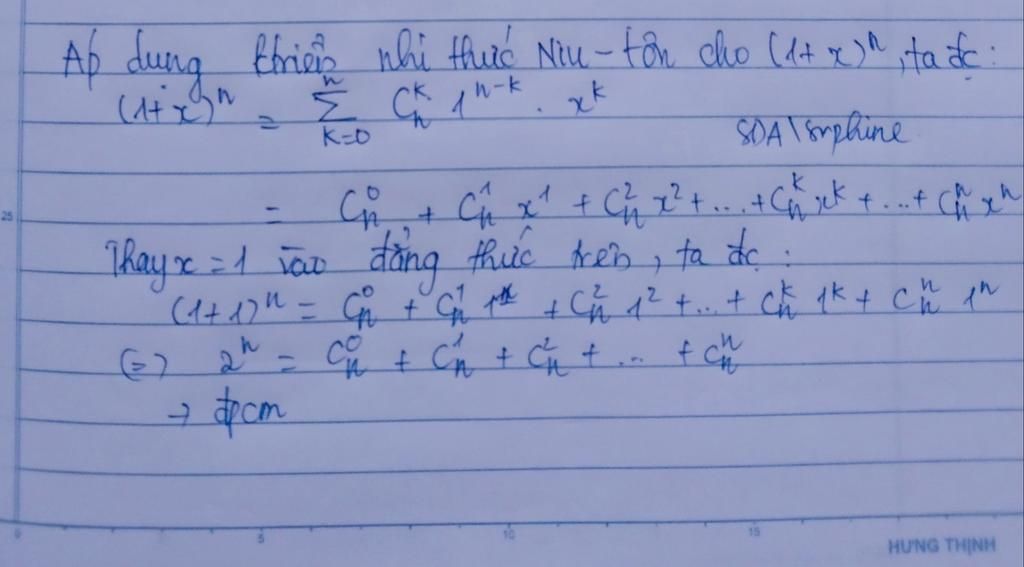 Áp dụng triển nhị thức Niu-tơn cho (1+x)^n, ta đc:
(1+x)^n = \sum_{k=0}^{n} C_n^k 1^{n-k} . x^k
SDA\srphine
= C_n^0 + C_n^1 x^1 + C_n^2 x^2 + ... + C_n^k x^k + ... + C_n^n x^n
Thay x = 1 vào đẳng thức trên, ta đc:
(1+1)^n = C_n^0 + C_n^1 1^1 + C_n^2 1^2 + ... + C_n^k 1^k + C_n^n 1^n
(=) 2^n = C_n^0 + C_n^1 + C_n^2 + ... + C_n^n
→ đpcm
25
0 5 10 15
HƯNG THỊNH